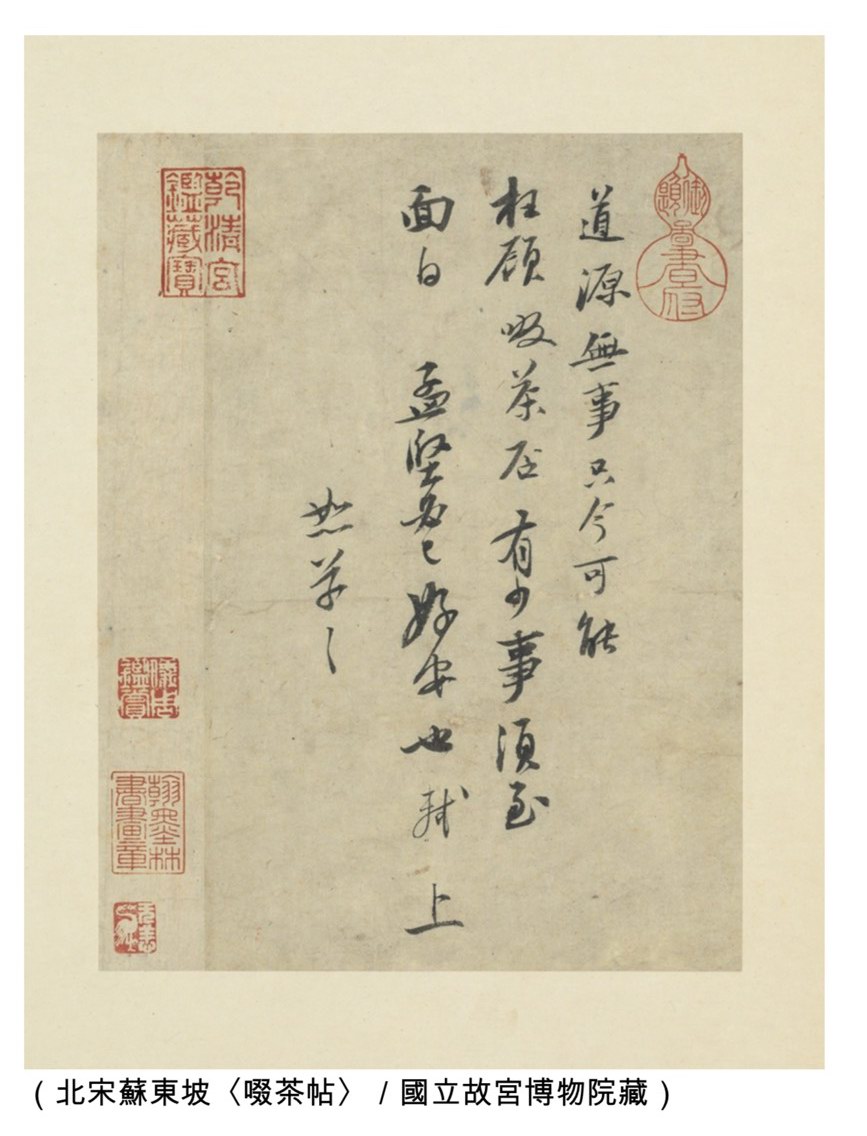 道源無事只今可能
枉顧啜茶否有少事須至
面白 孟堅必已好安也 軾 上
恕草〻
乾清宮
鑑藏寶
翰墨林
書畫章
（北宋蘇東坡〈啜茶帖〉／國立故宮博物院藏）